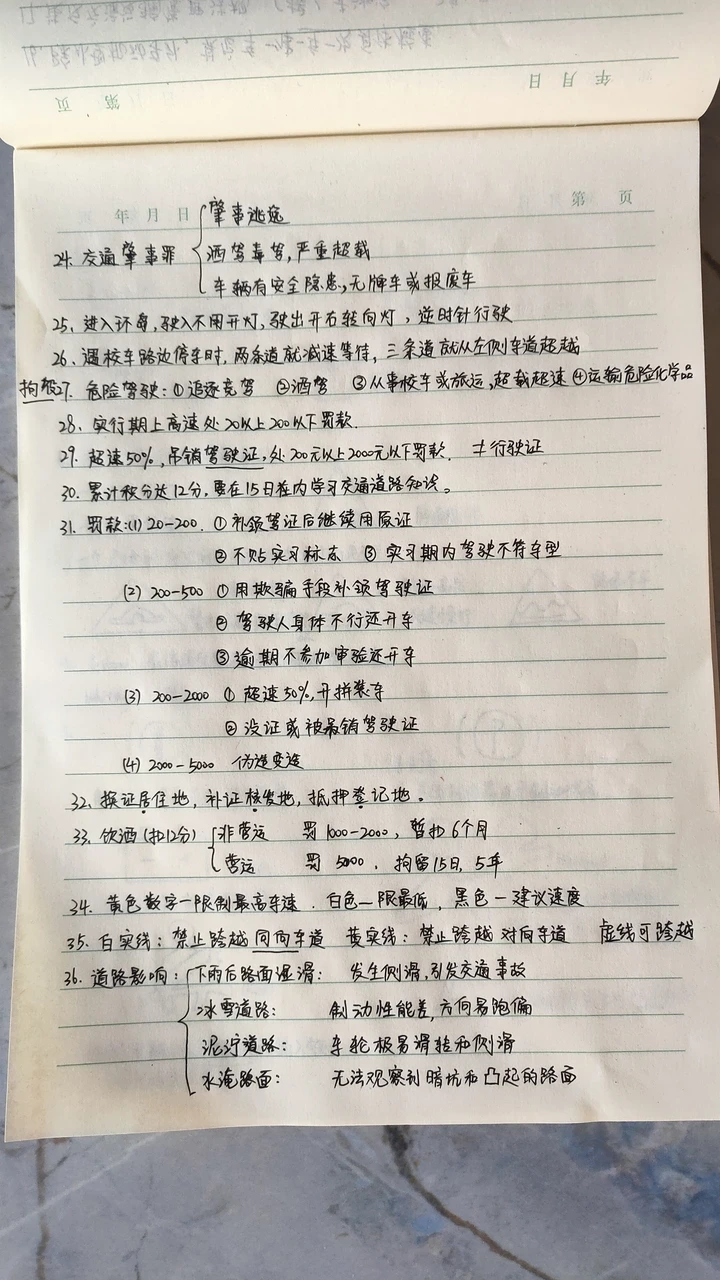 第 页
年 月 日
年 月 日
第 页
肇事逃逸
24. 交通肇事罪
酒驾毒驾,严重超载
车辆有安全隐患,无牌车或报废车
25. 进入环岛,驶入不用开灯,驶出开右转向灯,逆时针行驶
26. 遇校车路边停车时,两条道就减速等待,三条道就从左侧车道超越
拘役27. 危险驾驶:①追逐竞驾 ②酒驾 ③从事校车或旅运,超载超速 ④运输危险化学品
28. 实行期上高速处20以上200以下罚款.
29. 超速50%,吊销驾驶证,处200元以上2000元以下罚款. ≠行驶证
30. 累计积分达12分,要在15日在内学习交通道路知识。
31. 罚款:(1) 20-200. ①补领驾证后继续用原证
②不贴实习标志 ③实习期内驾驶不符车型
(2) 200-500 ①用欺骗手段补领驾驶证
②驾驶人身体不行还开车
③逾期不参加审验还开车
(3) 200-2000 ①超速50%,开拼装车
②没证或被吊销驾驶证
(4) 2000-5000 伪造变造
32. 换证居住地,补证核发地,抵押登记地。
33. 饮酒(扣12分) 非营运 罚1000-2000,暂扣6个月
营运 罚5000,拘留15日,5年
34. 黄色数字—限制最高车速.白色—限最低,黑色—建议速度
35. 白实线:禁止跨越同向车道 黄实线:禁止跨越对向车道 虚线可跨越
36. 道路影响:下雨后路面湿滑: 发生侧滑,引发交通事故
冰雪道路: 制动性能差,方向易跑偏
泥泞道路: 车轮极易滑转和侧滑
水淹路面: 无法观察到暗坑和凸起的路面